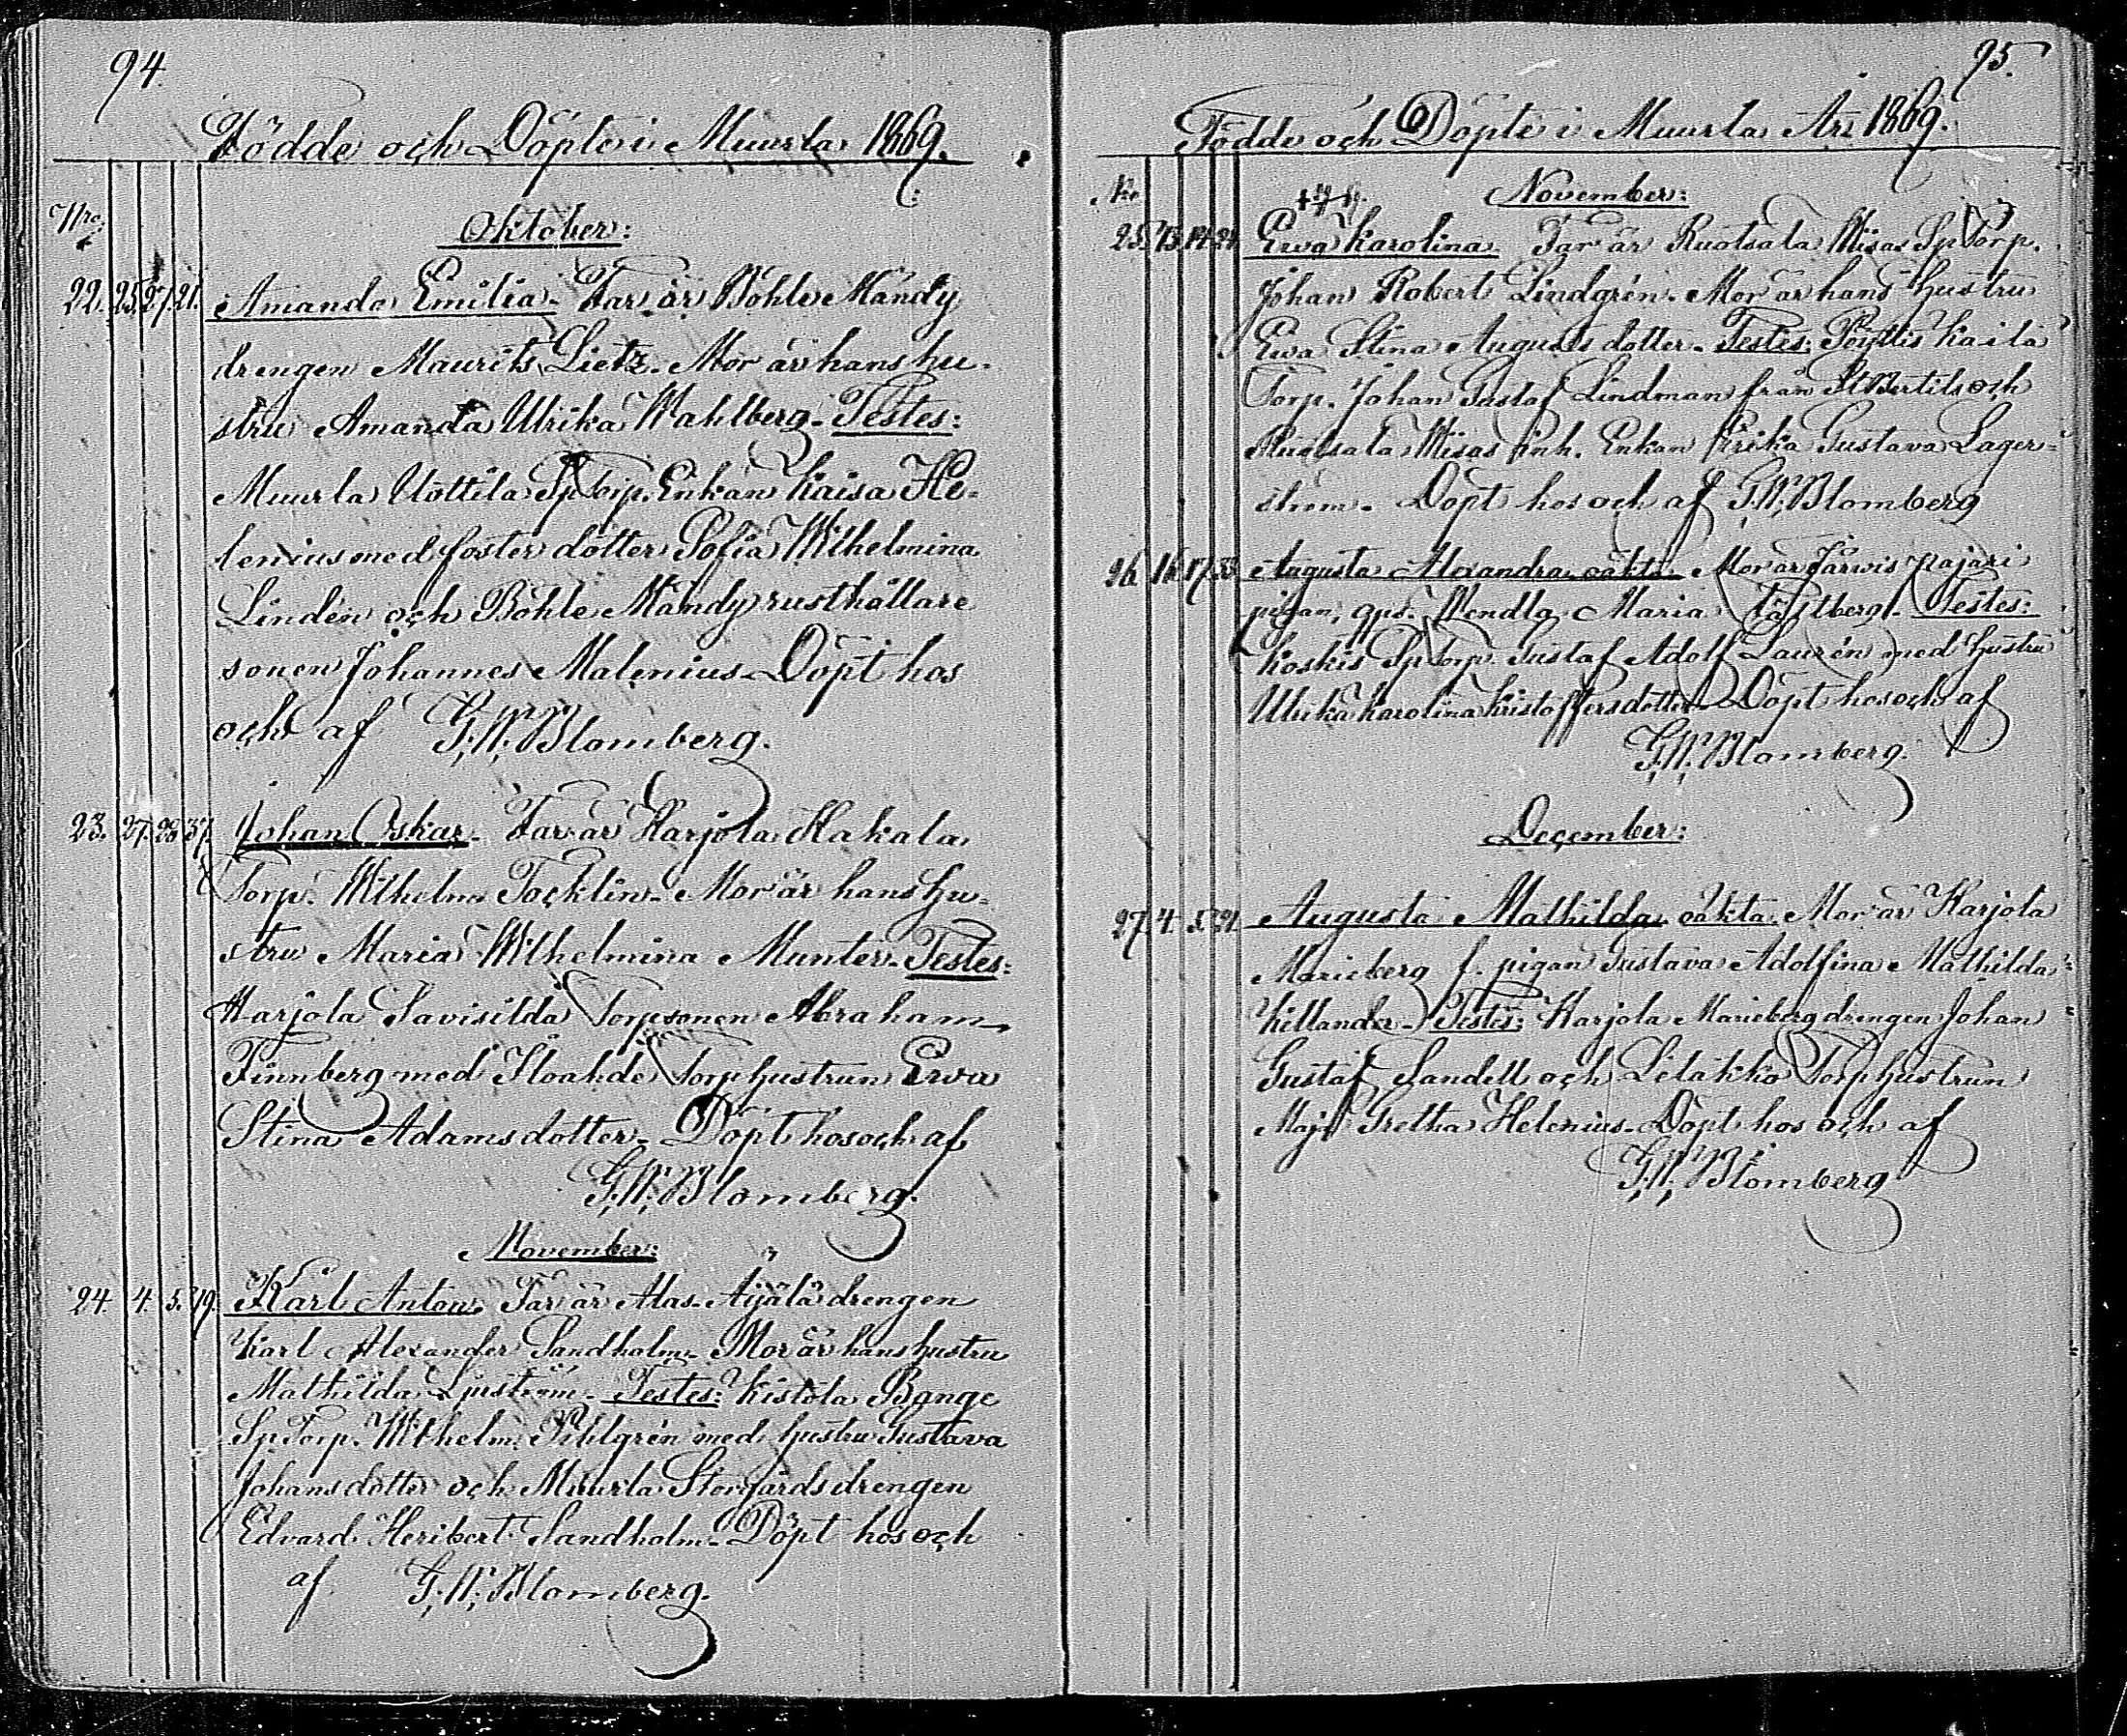 94.
Födde och Döpte i Muurla 1869.
Nro.
Oktober:
22. 25. 27. 21. Amanda Emilia. Far är Böhle Mändy
drengen Maurits Lietz. Mor är hans hu-
stru Amanda Ulrika Wahlberg. Testes:
Muurla Uottila Sp Torp. Enkan Kaisa He-
lenius med foster dotter Sofia Wilhelmina
Lindén och Böhle Mändy rusthållare
sonen Johannes Malenius. Döpt hos
och af G.W. Blomberg.
23. 27. 28. 37. Johan Oskar. Far är Harjola Hakala
Torp. Wilhelm Tocklin. Mor är hans hu-
stru Maria Wilhelmina Munter. Testes:
Harjola Savisilda Torpsonen Abraham
Finnberg med Torphustrun Ewa
Stina Adamsdotter. Döpt hos och af
G.W. Blomberg.
November:
24. 4. 5. 19. Karl Anton. Far är Alas-Äijälä drengen
Karl Alexander Sandholm. Mor är hans hustru
Mathilda. Testes: Kistola Bange
Sp Torp. Wilhelm Pihlgrén med hustru Gustava
Johansdotter och Muurla Storgårdsdrengen
Edvard Heribert Sandholm. Döpt hos och
af G.W. Blomberg.
95.
Födde och Döpte i Muurla År 1869.
Nro
November:
25. 13. 14. Ewa Karolina. Far är Ruotsala Wisas Sp Torp.
Johan Robert Lindgrén. Mor är hans hustru
Ewa Stina Augusts dotter. Testes: Pöytiis Kaila
Torp. Johan Gustaf Lindman från St Bertils och
Ruotsala Wisas inh. Enkan Erika Gustava Lager-
ström. Döpt hos och af G.W. Blomberg
26. 16. 17. 33. Augusta Alexandra oäkta. Mor är Järwis Pajari
pigan, qps. Wendla Maria Töstberg. Testes:
Koskis Sp Torp. Gustaf Adolf Laurén med hustru
Ulrika Karolina Kristoffersdotter. Döpt hos och af
G.W. Blomberg.
December:
27. 4. 5. 21. Augusta Mathilda oäkta. Mor är Karjola
Marieberg f. pigan Gustava Adolfina Mathilda
Killander. Testes: Karjola Marieberg drengen Johan
Gustaf Sandell och Letakko Torphustrun
Maja Gretha Helenius. Döpt hos och af
G.W. Blomberg